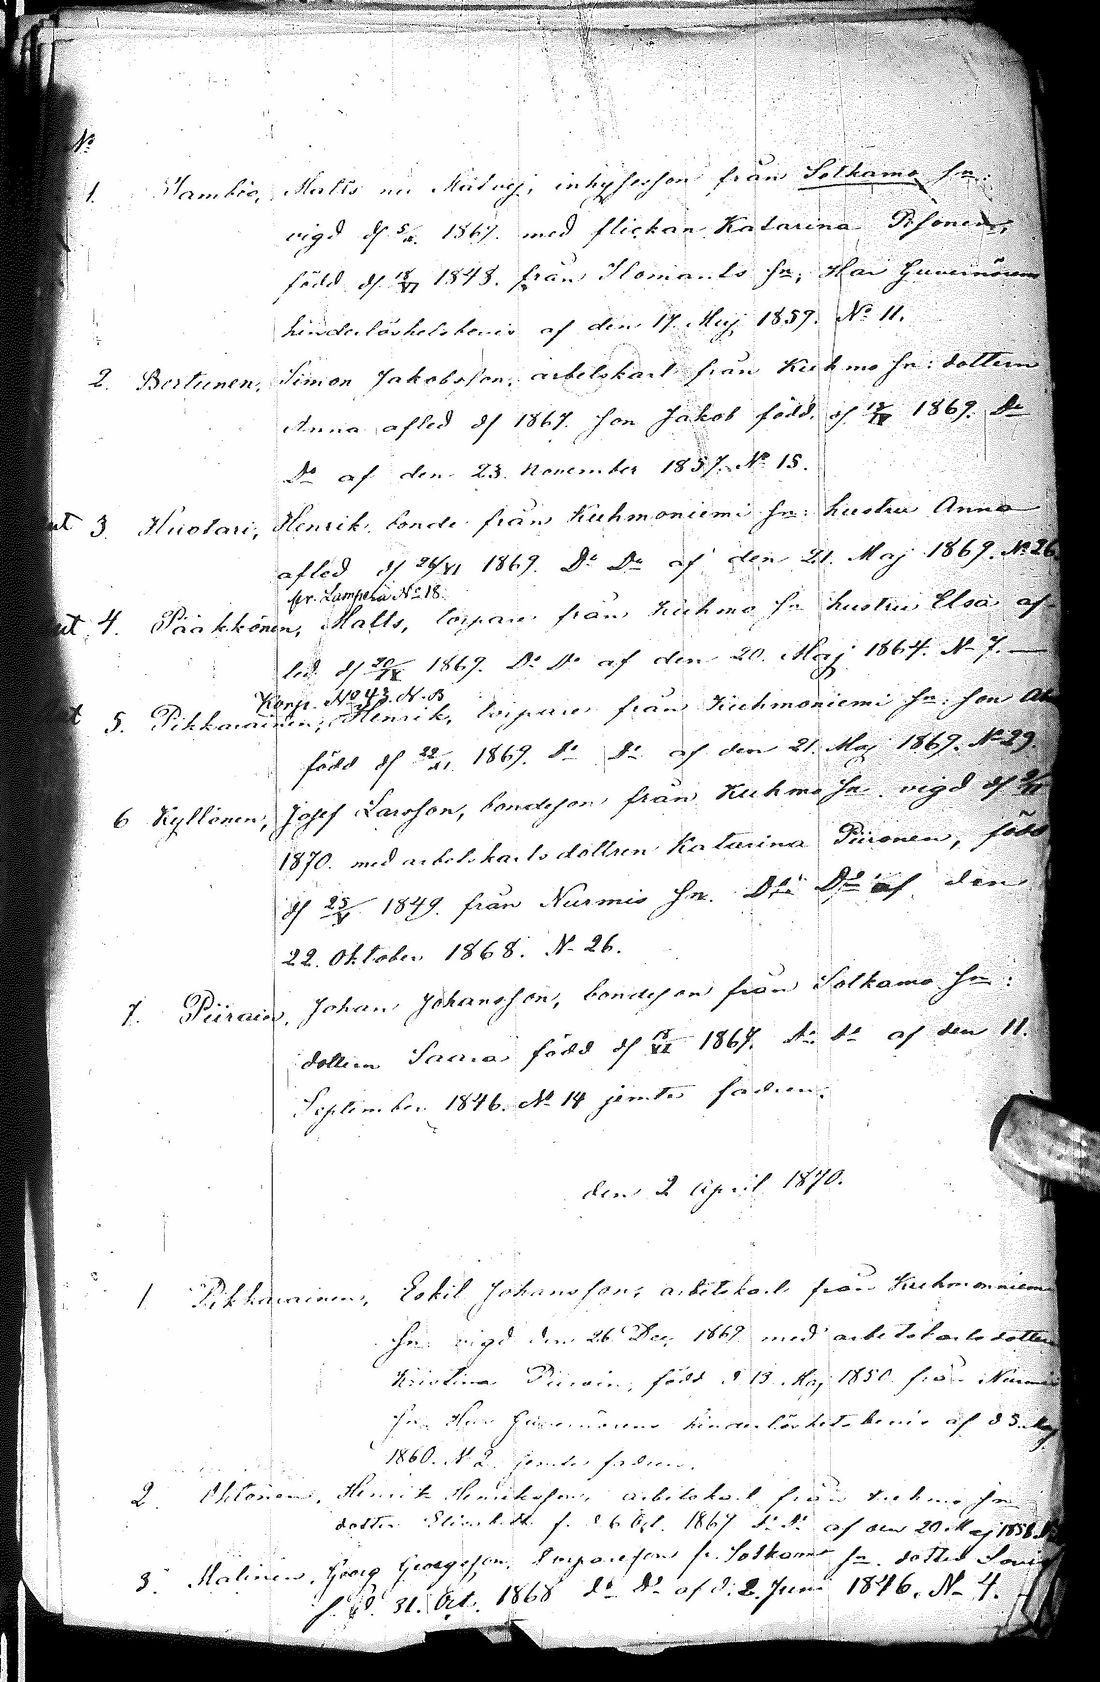 No
1. Matts nu inhysesson från Sotkamo Sn:
vigd d/ 5/ 1867. med flickan Katarina
född d/ 18/VI 1848. från Ilomants Sn, Har Guvernörens
hinderlöshetsbevis af den 17. Maj 1859. No 11.
2. Bertunen, Simon Jakobsson, arbetskarl från Kuhmo Sn: dottern
Anna afled d/ 1867. Son Jakob född d/ 1869. Do
Do af den 23. November 1857. No 15.
3 Huotari, Henrik, bonde från Kuhmoniemi Sn: hustru Anna
afled d/ 26/VI 1869. Do Do af den 21. Maj 1869. No 26
fr. Lampera No 18.
4. Pääkkönen, Matts, torpare från Kuhmo Sn hustru Elsa af-
led d/ 20/IX 1869. Do Do af den 20. Maj 1864. No 7. —
No 43. N. B
5. Pikkarainen, Henrik, torpare från Kuhmoniemi Sn: son
född d/ 22/XI 1869. Do Do af den 21. Maj 1869. No 29.
6 Kyllönen, Josef Larsson, bondeson från Kuhmo Sn. vigd d/
1870. med arbetskarlsdottren Katarina Piironen, född
d/ 25/V 1849. från Nurmis Sn. Do: Do: af den
22. Oktober 1868. No 26.
7. Piirain, Johan Johansson, bondeson från Sotkamo Sn:
dottern Saara född d/ 18/VI 1867. Do Do af den 11.
September 1846. No 14 jemte fadren.
den 2 April 1870.
1 Pikkarainen, Eskil Johansson, arbetskarl från Kuhmoniemi
Sn. vigd den 26 Dec. 1869 med arbetskarlsdottern
Kristina Piirain, född d 13. Maj 1850 från Nurmis
Sn. Har Guvernörens hinderlöshetsbevis af d 3. Maj
1860. No 2. jemte fadren.
2. Henrik Henriksson, arbetskarl från Kuhmo Sn
dotter Elisabeth f. d 6 Oct. 1867 Do Do af den 20 Maj 1858.
3. Malinen, Georg Georgsson, torpareson fr. Sotkamo Sn. dotter
f. d. 31. Oct. 1868 Do Do af d. 2. Juni 1846. No 4.